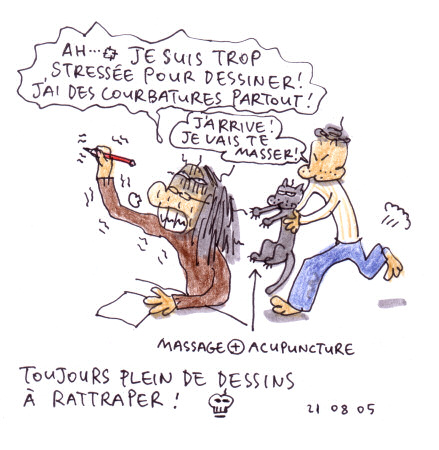 AH...☼ JE SUIS TROP
STRESSÉE POUR DESSINER!
J'AI DES COURBATURES PARTOUT!
J'ARRIVE!
JE VAIS TE
MASSER!
MASSAGE ⊕ ACUPUNCTURE
TOUJOURS PLEIN DE DESSINS
À RATTRAPER!
21 08 05